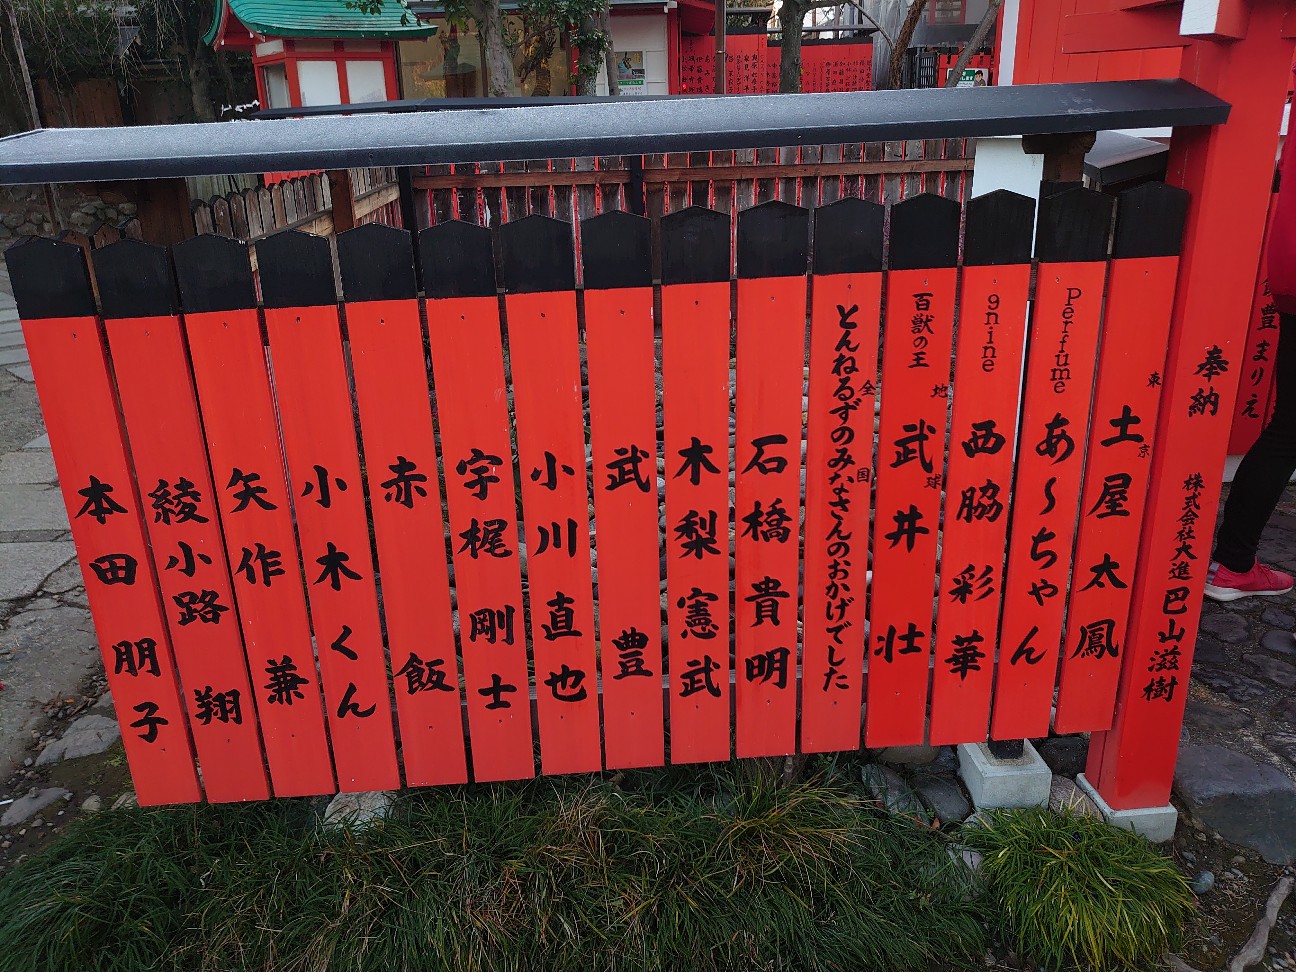 奉納 株式会社大進 巴山滋樹
東京 土屋太鳳
Perfume あ〜ちゃん
9nine 西脇彩華
百獣の王 武井壮
全国 地球
とんねるずのみなさんのおかげでした
石橋貴明
木梨憲武
武 豊
小川直也
宇梶剛士
赤飯
小木くん
矢作兼
綾小路 翔
本田朋子
豊まりえ